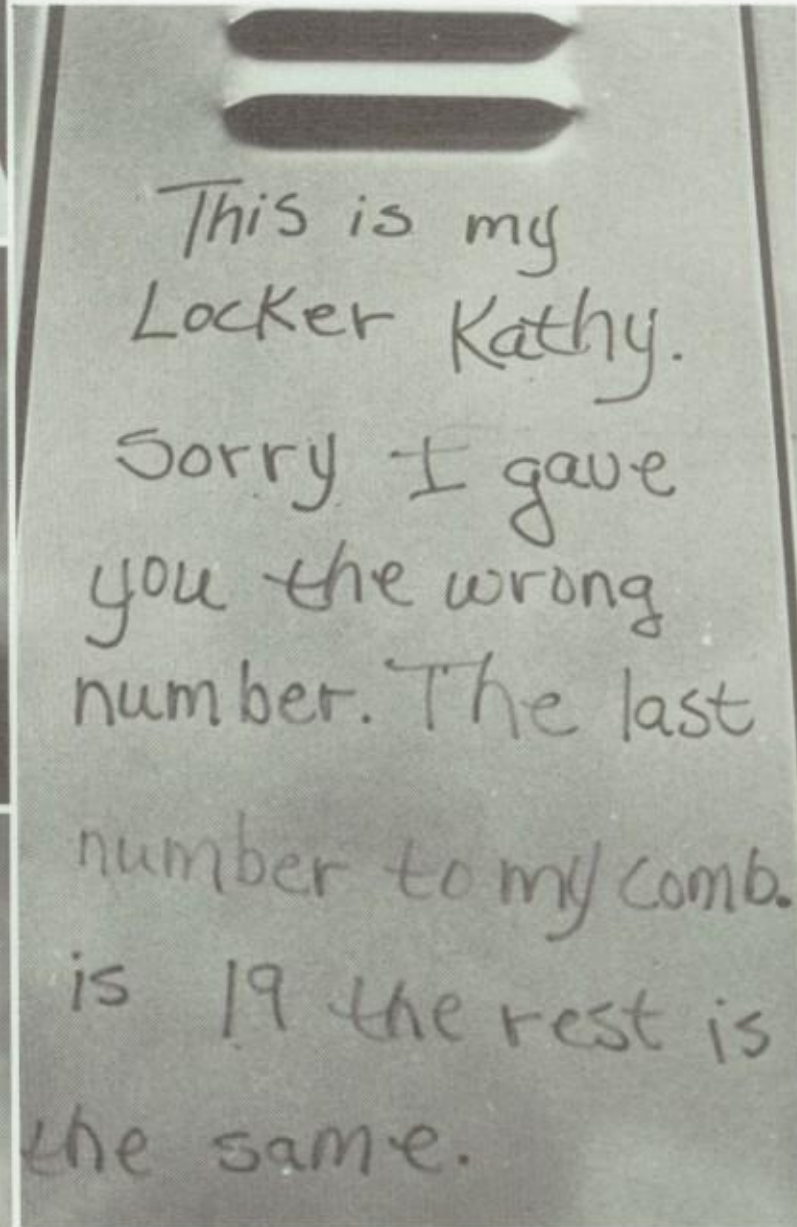 This is my
Locker Kathy.
Sorry I gave
you the wrong
number. The last
number to my comb.
is 19 the rest is
the same.